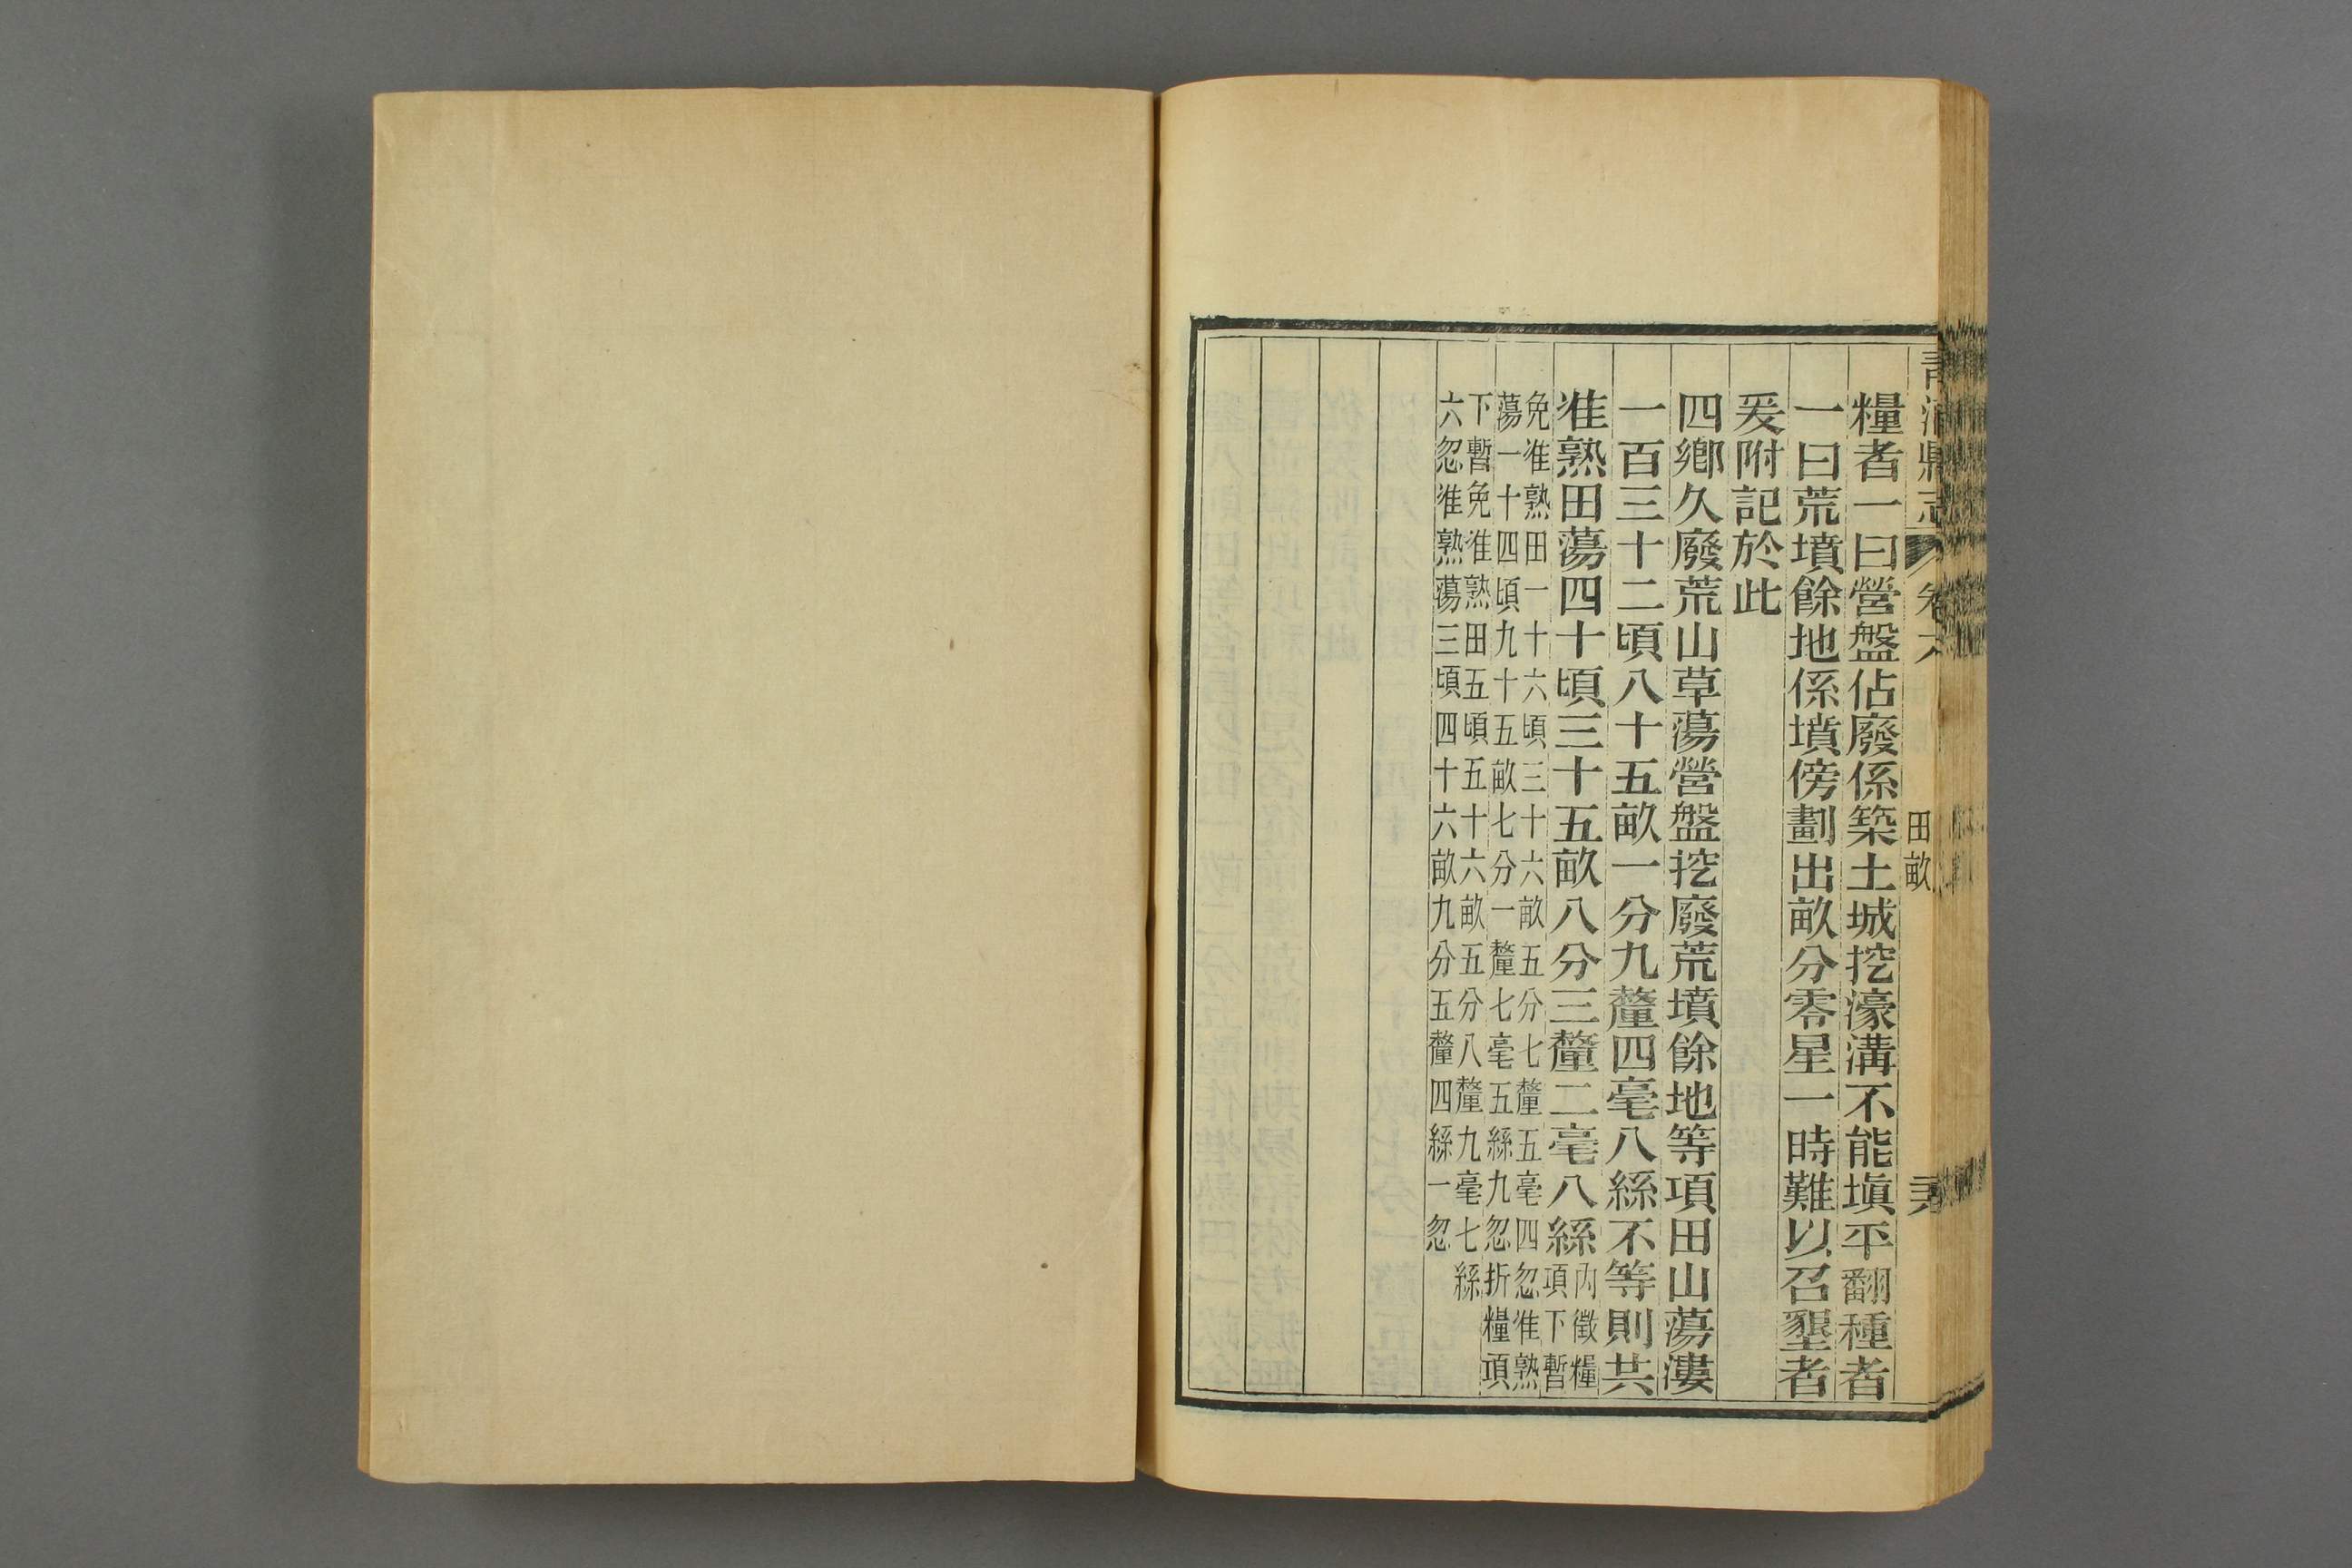 青浦縣志 卷六 田畝
糧者一曰營盤佔廢係築土城挖濠溝不能塡平翻種者
一曰荒墳餘地係墳傍劃出畝分零星一時難以召墾者
爰附記於此
四鄉久廢荒山草蕩營盤挖廢荒墳餘地等項田山蕩漊
一百三十二頃八十五畝一分九釐四毫八絲不等則共
准熟田蕩四十頃三十五畝八分三釐二毫八絲
內徵糧
項下暫
免准熟田一十六頃三十六畝五分七釐五毫四忽准熟
蕩一十四頃九十五畝七分一釐七毫五絲九忽折糧項
下暫免准熟田五頃五十六畝五分八釐九毫七絲
六忽准熟蕩三頃四十六畝九分五釐四絲一忽